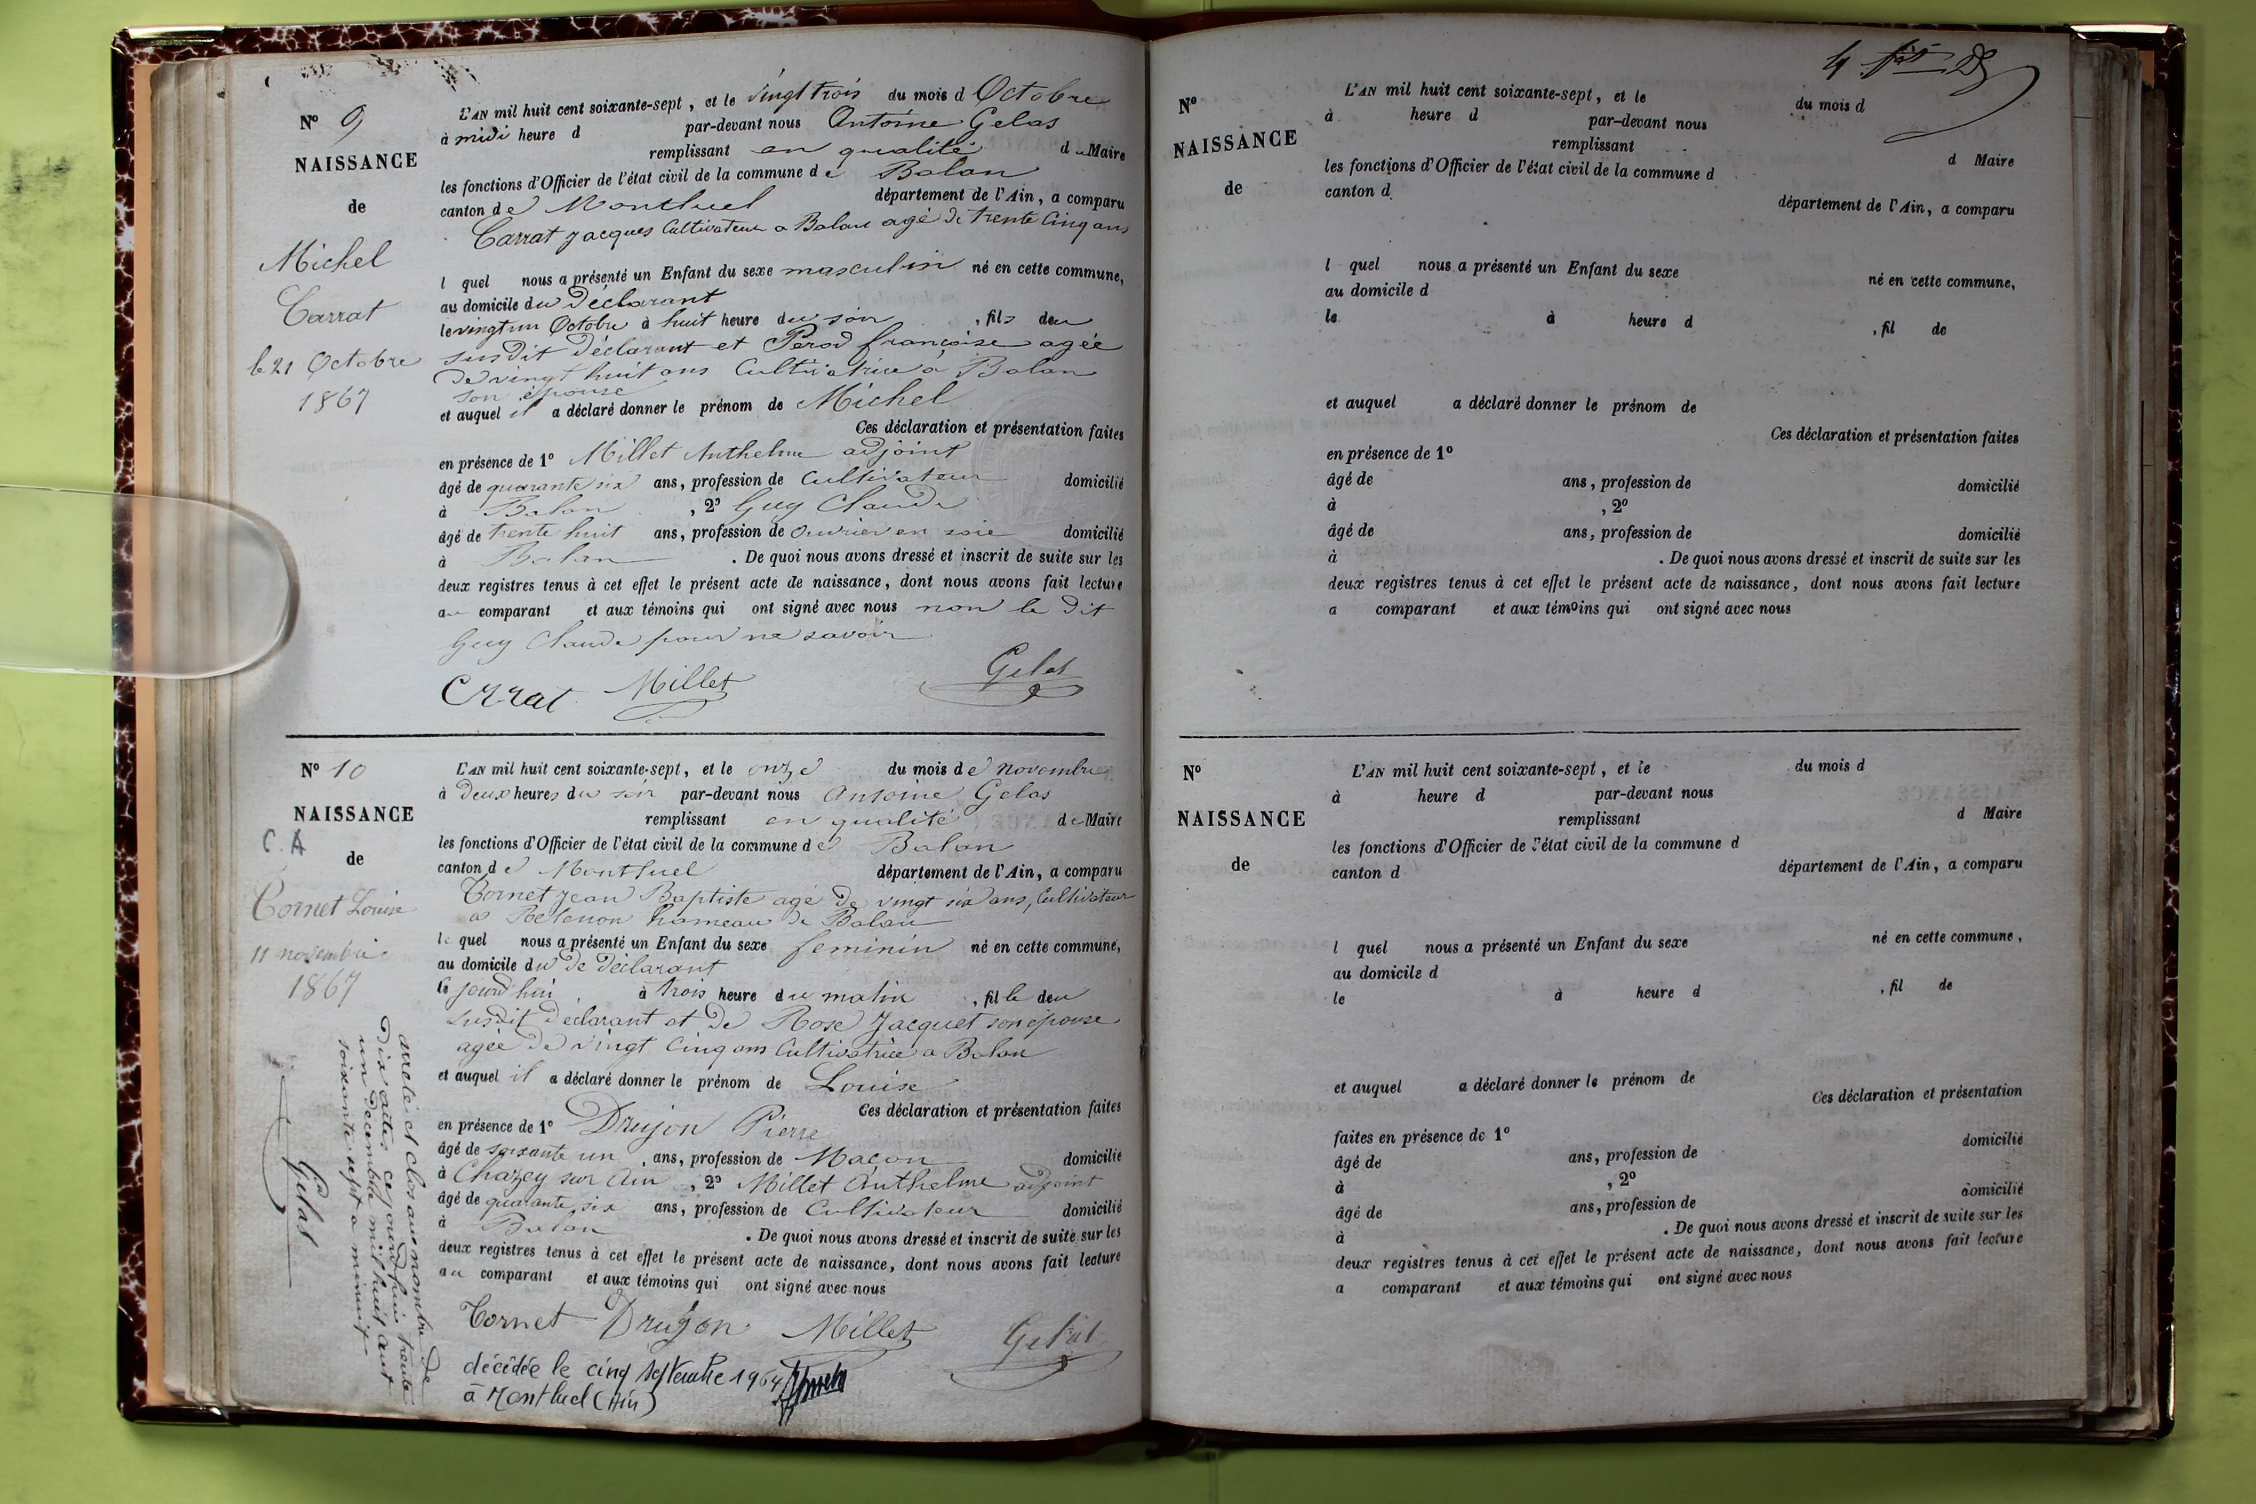 N° 9
NAISSANCE
de
Michel
Carrat
le 21 Octobre
1867
L'AN mil huit cent soixante-sept, et le vingt trois du mois d Octobre
à midi heure d par-devant nous Antoine Gelas
remplissant en qualité de Maire
les fonctions d'Officier de l'état civil de la commune de Balan
canton de Montluel département de l'Ain, a comparu
Carrat Jacques Cultivateur a Balan agé de trente cinq ans
l quel nous a présenté un Enfant du sexe masculin né en cette commune,
au domicile du Déclarant
le vingt un Octobre à huit heure du soir, fils deu
susdit déclarant et Perod françoise agée
de vingt huit ans Cultivatrice a Balan
son épouse
et auquel il a déclaré donner le prénom de Michel
Ces déclaration et présentation faites
en présence de 1° Millet Anthelme adjoint
âgé de quarante six ans, profession de Cultivateur domicilié
à Balan, 2° Guy Claude
âgé de trente huit ans, profession de ouvrier en soie domicilié
à Balan. De quoi nous avons dressé et inscrit de suite sur les
deux registres tenus à cet effet le présent acte de naissance, dont nous avons fait lecture
au comparant et aux témoins qui ont signé avec nous non le dit
Guy Claude pour ne savoir
Crrat Millet Gelas
N° 10
NAISSANCE
C. A
de
Cornet Louise
11 novembre
1867
L'AN mil huit cent soixante-sept, et le onze du mois de novembre
à Deux heures du soir par-devant nous Antoine Gelas
remplissant en qualité de Maire
les fonctions d'Officier de l'état civil de la commune de Balan
canton de Montluel département de l'Ain, a comparu
Cornet Jean Baptiste agé de vingt six ans, Cultivateur
a hameau de Balan
le quel nous a présenté un Enfant du sexe feminin né en cette commune,
au domicile du de déclarant
le jourd'hui, à trois heure du matin, fille deu
susdit declarant et de Rose Jacquet son épouse
agée de vingt cinq ans Cultivatrice a Balan
et auquel il a déclaré donner le prénom de Louise
Ces déclaration et présentation faites
en présence de 1° Drujon Pierre
âgé de soixante un, ans, profession de Macon domicilié
à Chazey sur Ain, 2° Millet Anthelme adjoint
âgé de quarante six ans, profession de Cultivateur domicilié
à Balan. De quoi nous avons dressé et inscrit de suite sur les
deux registres tenus à cet effet le présent acte de naissance, dont nous avons fait lecture
au comparant et aux témoins qui ont signé avec nous
Cornet Drujon Millet Gelas
décédée le cinq Septembre 1964
à Montluel (Ain)
arreté et clos au nombre de
Dix actes ce jourd'hui trente
un Decembre mil huit cent
soixante sept a minuit
Gelas
N°
NAISSANCE
de
L'AN mil huit cent soixante-sept, et le du mois d
à heure d par-devant nous
remplissant d Maire
les fonctions d'Officier de l'état civil de la commune d
canton d département de l'Ain, a comparu
l quel nous a présenté un Enfant du sexe né en cette commune,
au domicile d
le à heure d, fil de
et auquel a déclaré donner le prénom de
Ces déclaration et présentation faites
en présence de 1°
âgé de ans, profession de domicilié
à, 2°
âgé de ans, profession de domicilié
à. De quoi nous avons dressé et inscrit de suite sur les
deux registres tenus à cet effet le présent acte de naissance, dont nous avons fait lecture
a comparant et aux témoins qui ont signé avec nous
N°
NAISSANCE
de
L'AN mil huit cent soixante-sept, et le du mois d
à heure d par-devant nous
remplissant d Maire
les fonctions d'Officier de l'état civil de la commune d
canton d département de l'Ain, a comparu
l quel nous a présenté un Enfant du sexe né en cette commune,
au domicile d
le à heure d, fil de
et auquel a déclaré donner le prénom de
Ces déclaration et présentation
faites en présence de 1° domicilié
âgé de ans, profession de
à, 2° domicilié
âgé de ans, profession de
à. De quoi nous avons dressé et inscrit de suite sur les
deux registres tenus à cet effet le présent acte de naissance, dont nous avons fait lecture
a comparant et aux témoins qui ont signé avec nous